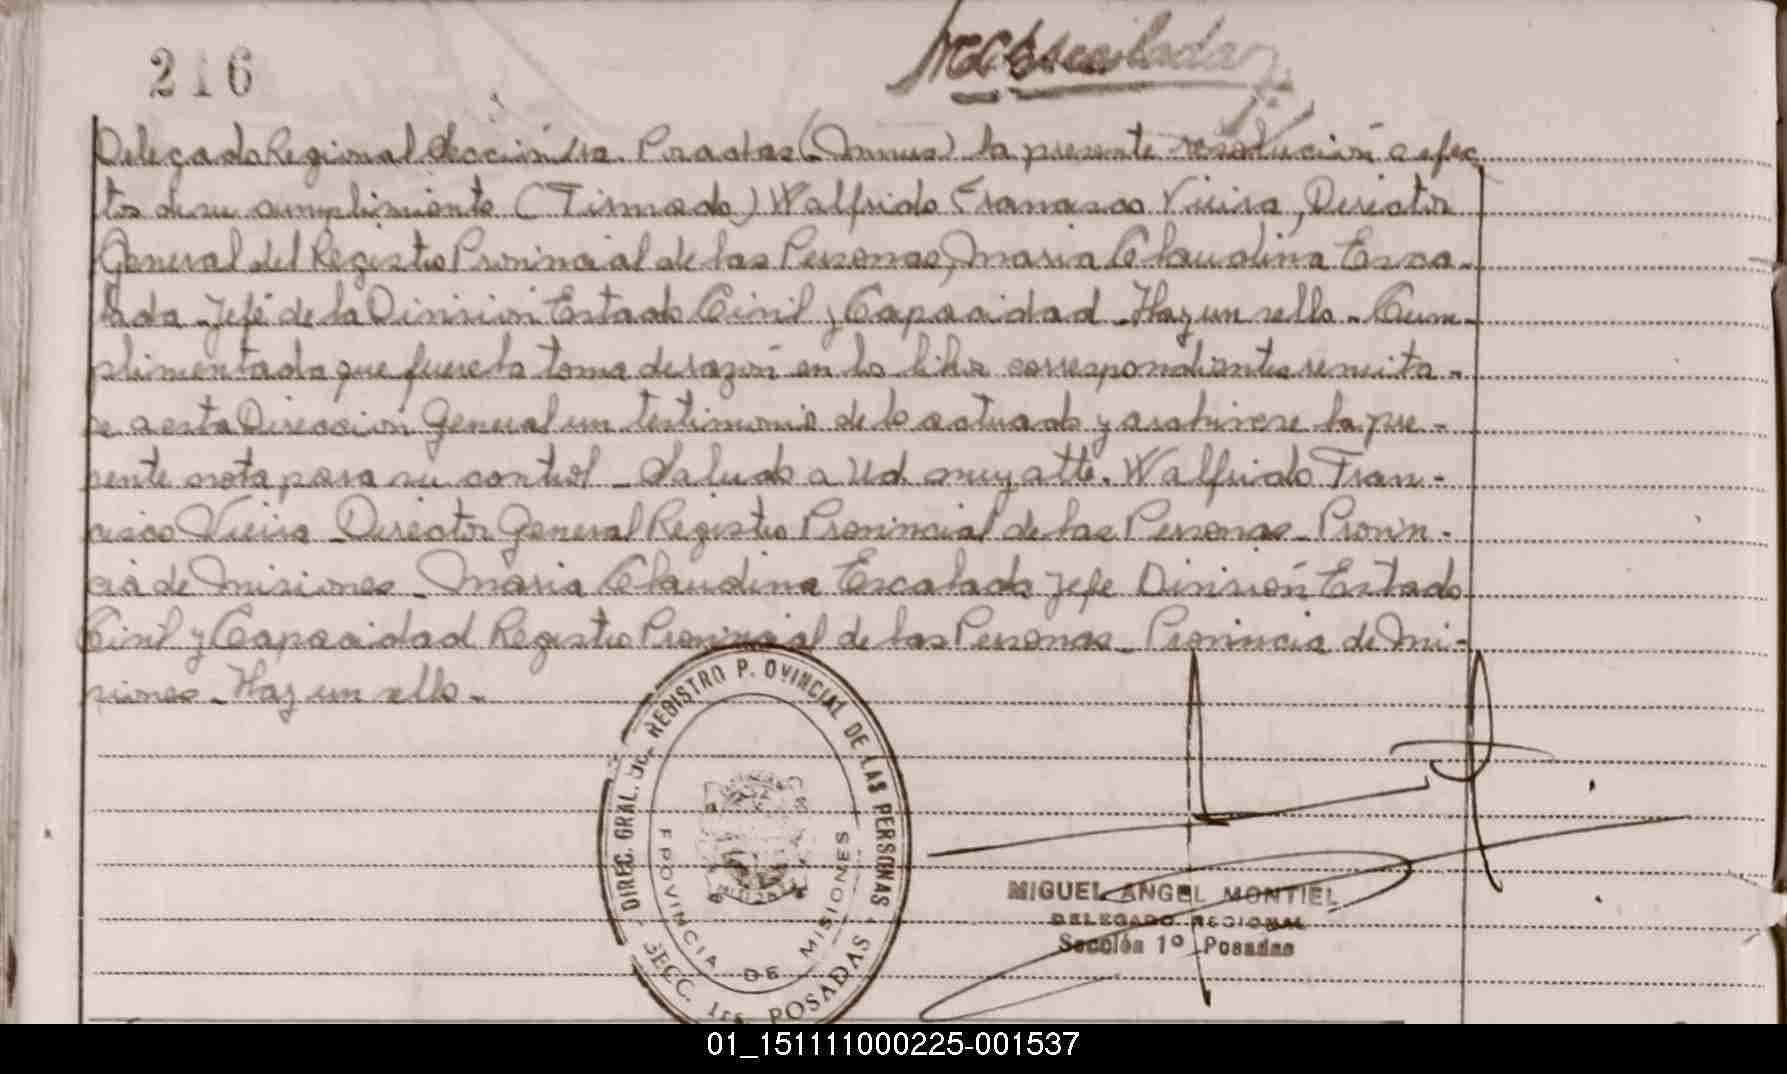 216
Delegado Regional Sección 1ra. Posadas (Mnes) la presente resolución a efec
tos de su cumplimiento (Firmado) Walfrido Francisco Vieira, Director
General del Registro Provincial de las Personas, Maria Claudina Esca-
lada - Jefe de la División Estado Civil y Capacidad - Hay un sello - Cum-
plimentada que fuere la toma de razón en los libros correspondientes remita-
se a esta Dirección General un testimonio de lo actuado y archivese la pre-
sente nota para su control - Saludo a Ud. muy atte. Walfrido Fran-
cisco Vieira - Director General Registro Provincial de las Personas - Provin-
cia de Misiones - Maria Claudina Escalada Jefe División Estado
Civil y Capacidad Registro Provincial de las Personas - Provincia de Mi-
siones - Hay un sello -
DIREC. GRAL. DE REGISTRO P. OVINCIAL DE LAS PERSONAS
SECC. 1ra. POSADAS
PROVINCIA DE MISIONES
MIGUEL ANGEL MONTIEL
DELEGADO REGIONAL
Sección 1º - Posadas
01_151111000225-001537